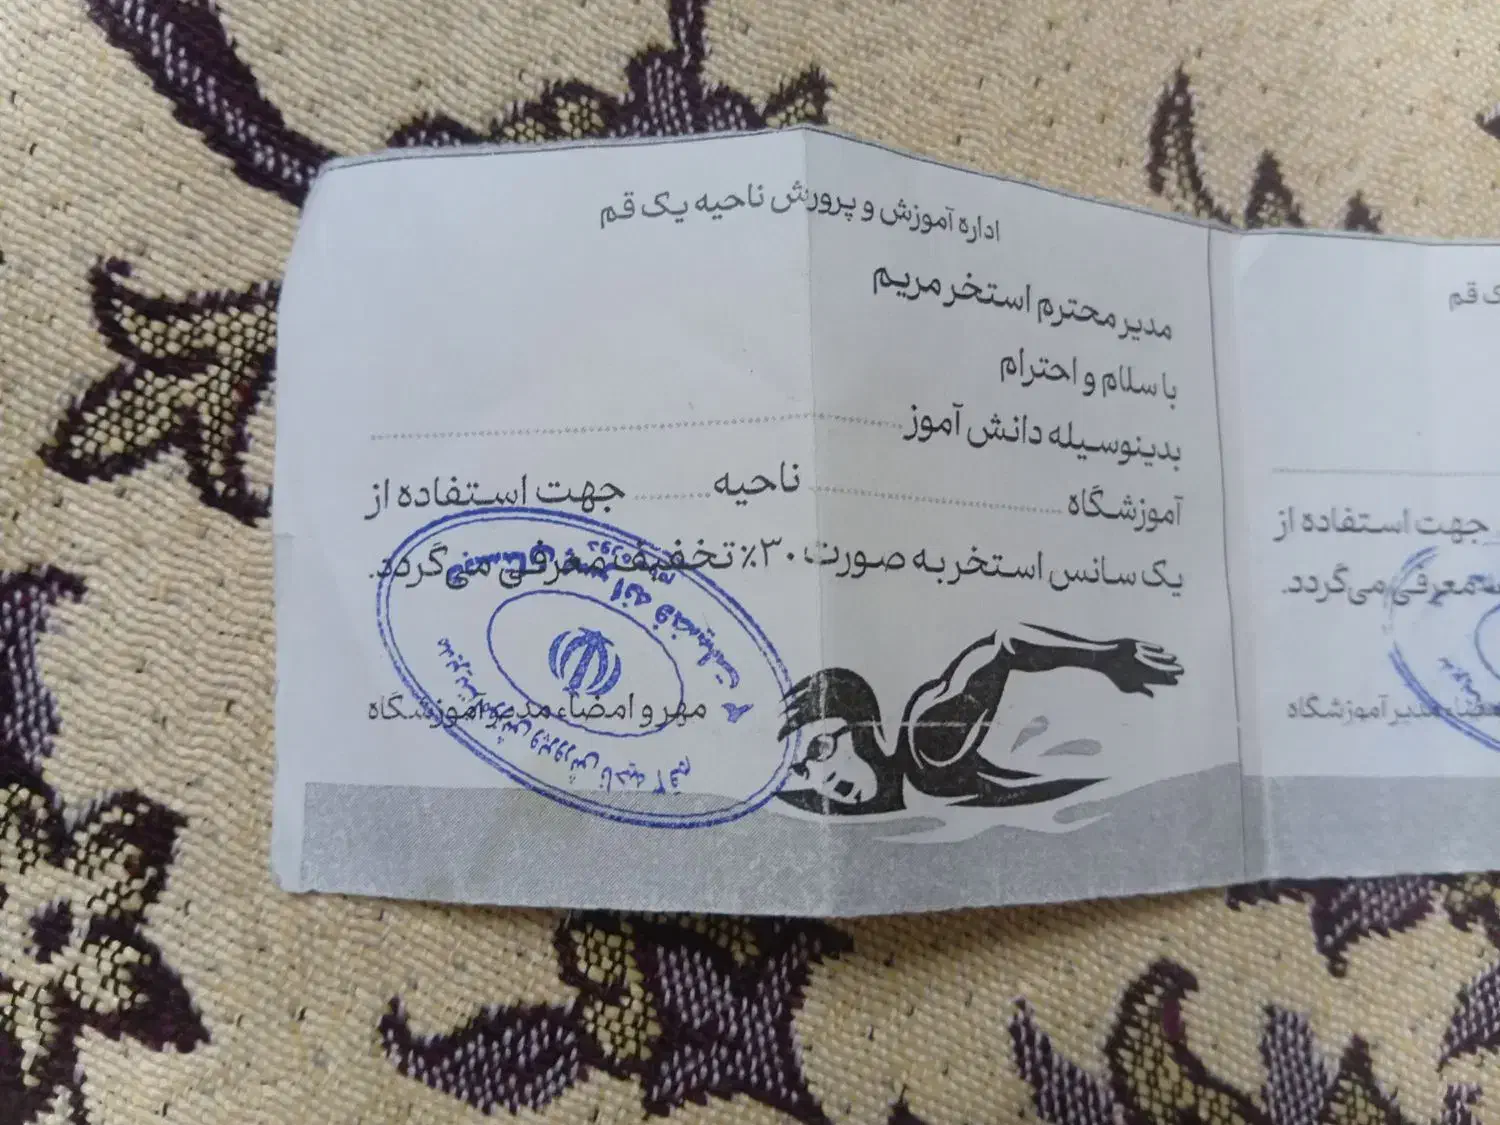 اداره آموزش و پرورش ناحیه یک قم
مدیر محترم استخر مریم
با سلام و احترام
بدینوسیله دانش آموز
آموزشگاه ........ ناحیه ........ جهت استفاده از
یک سانس استخر به صورت ۳۰٪ تخفیف معرفی می‌گردد.
مهر و امضاء مدیر آموزشگاه
فضیلت
آموزش و پرورش ناحیه
قم
ک قم
جهت استفاده از
معرفی می‌گردد.
مدیر آموزشگاه